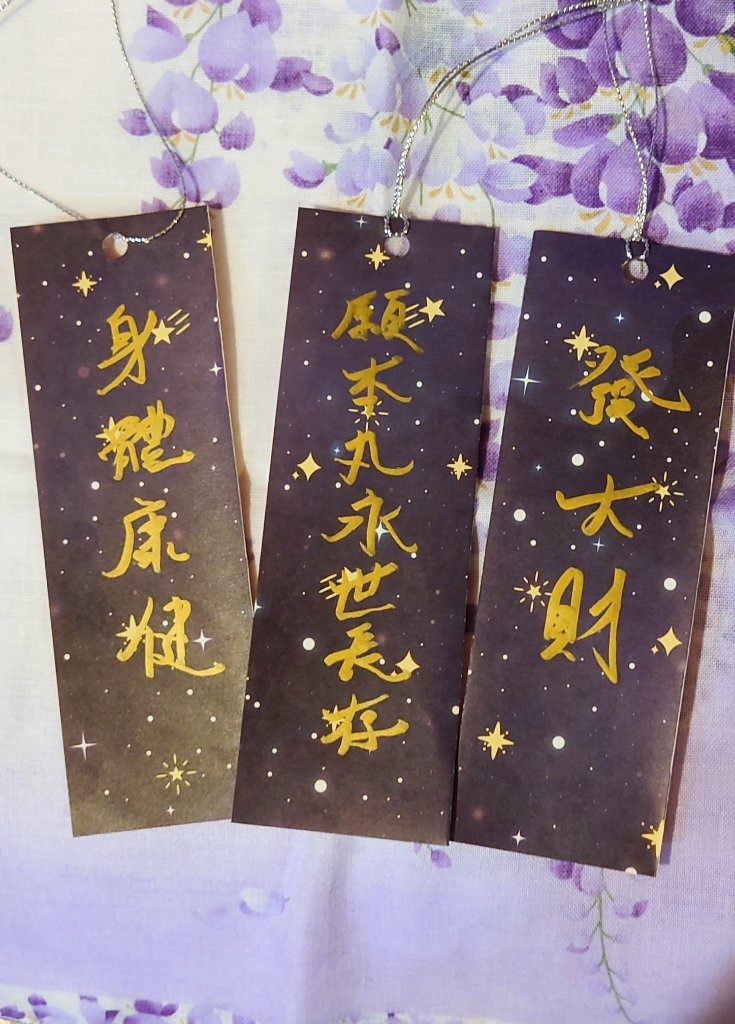 發大財
願本丸永世長存
身體康健